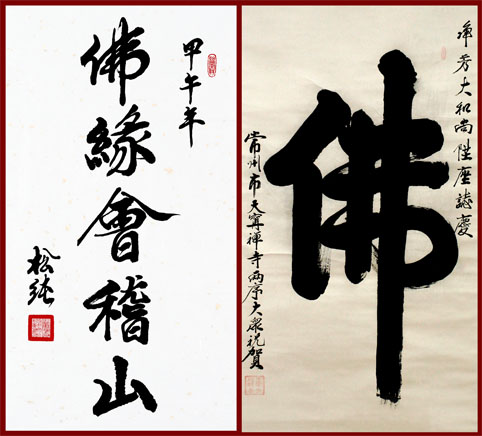 甲午年
佛緣會稽山
松純
淨芳大和尚陞座誌慶
佛
常州市天寧禪寺兩序大眾祝賀